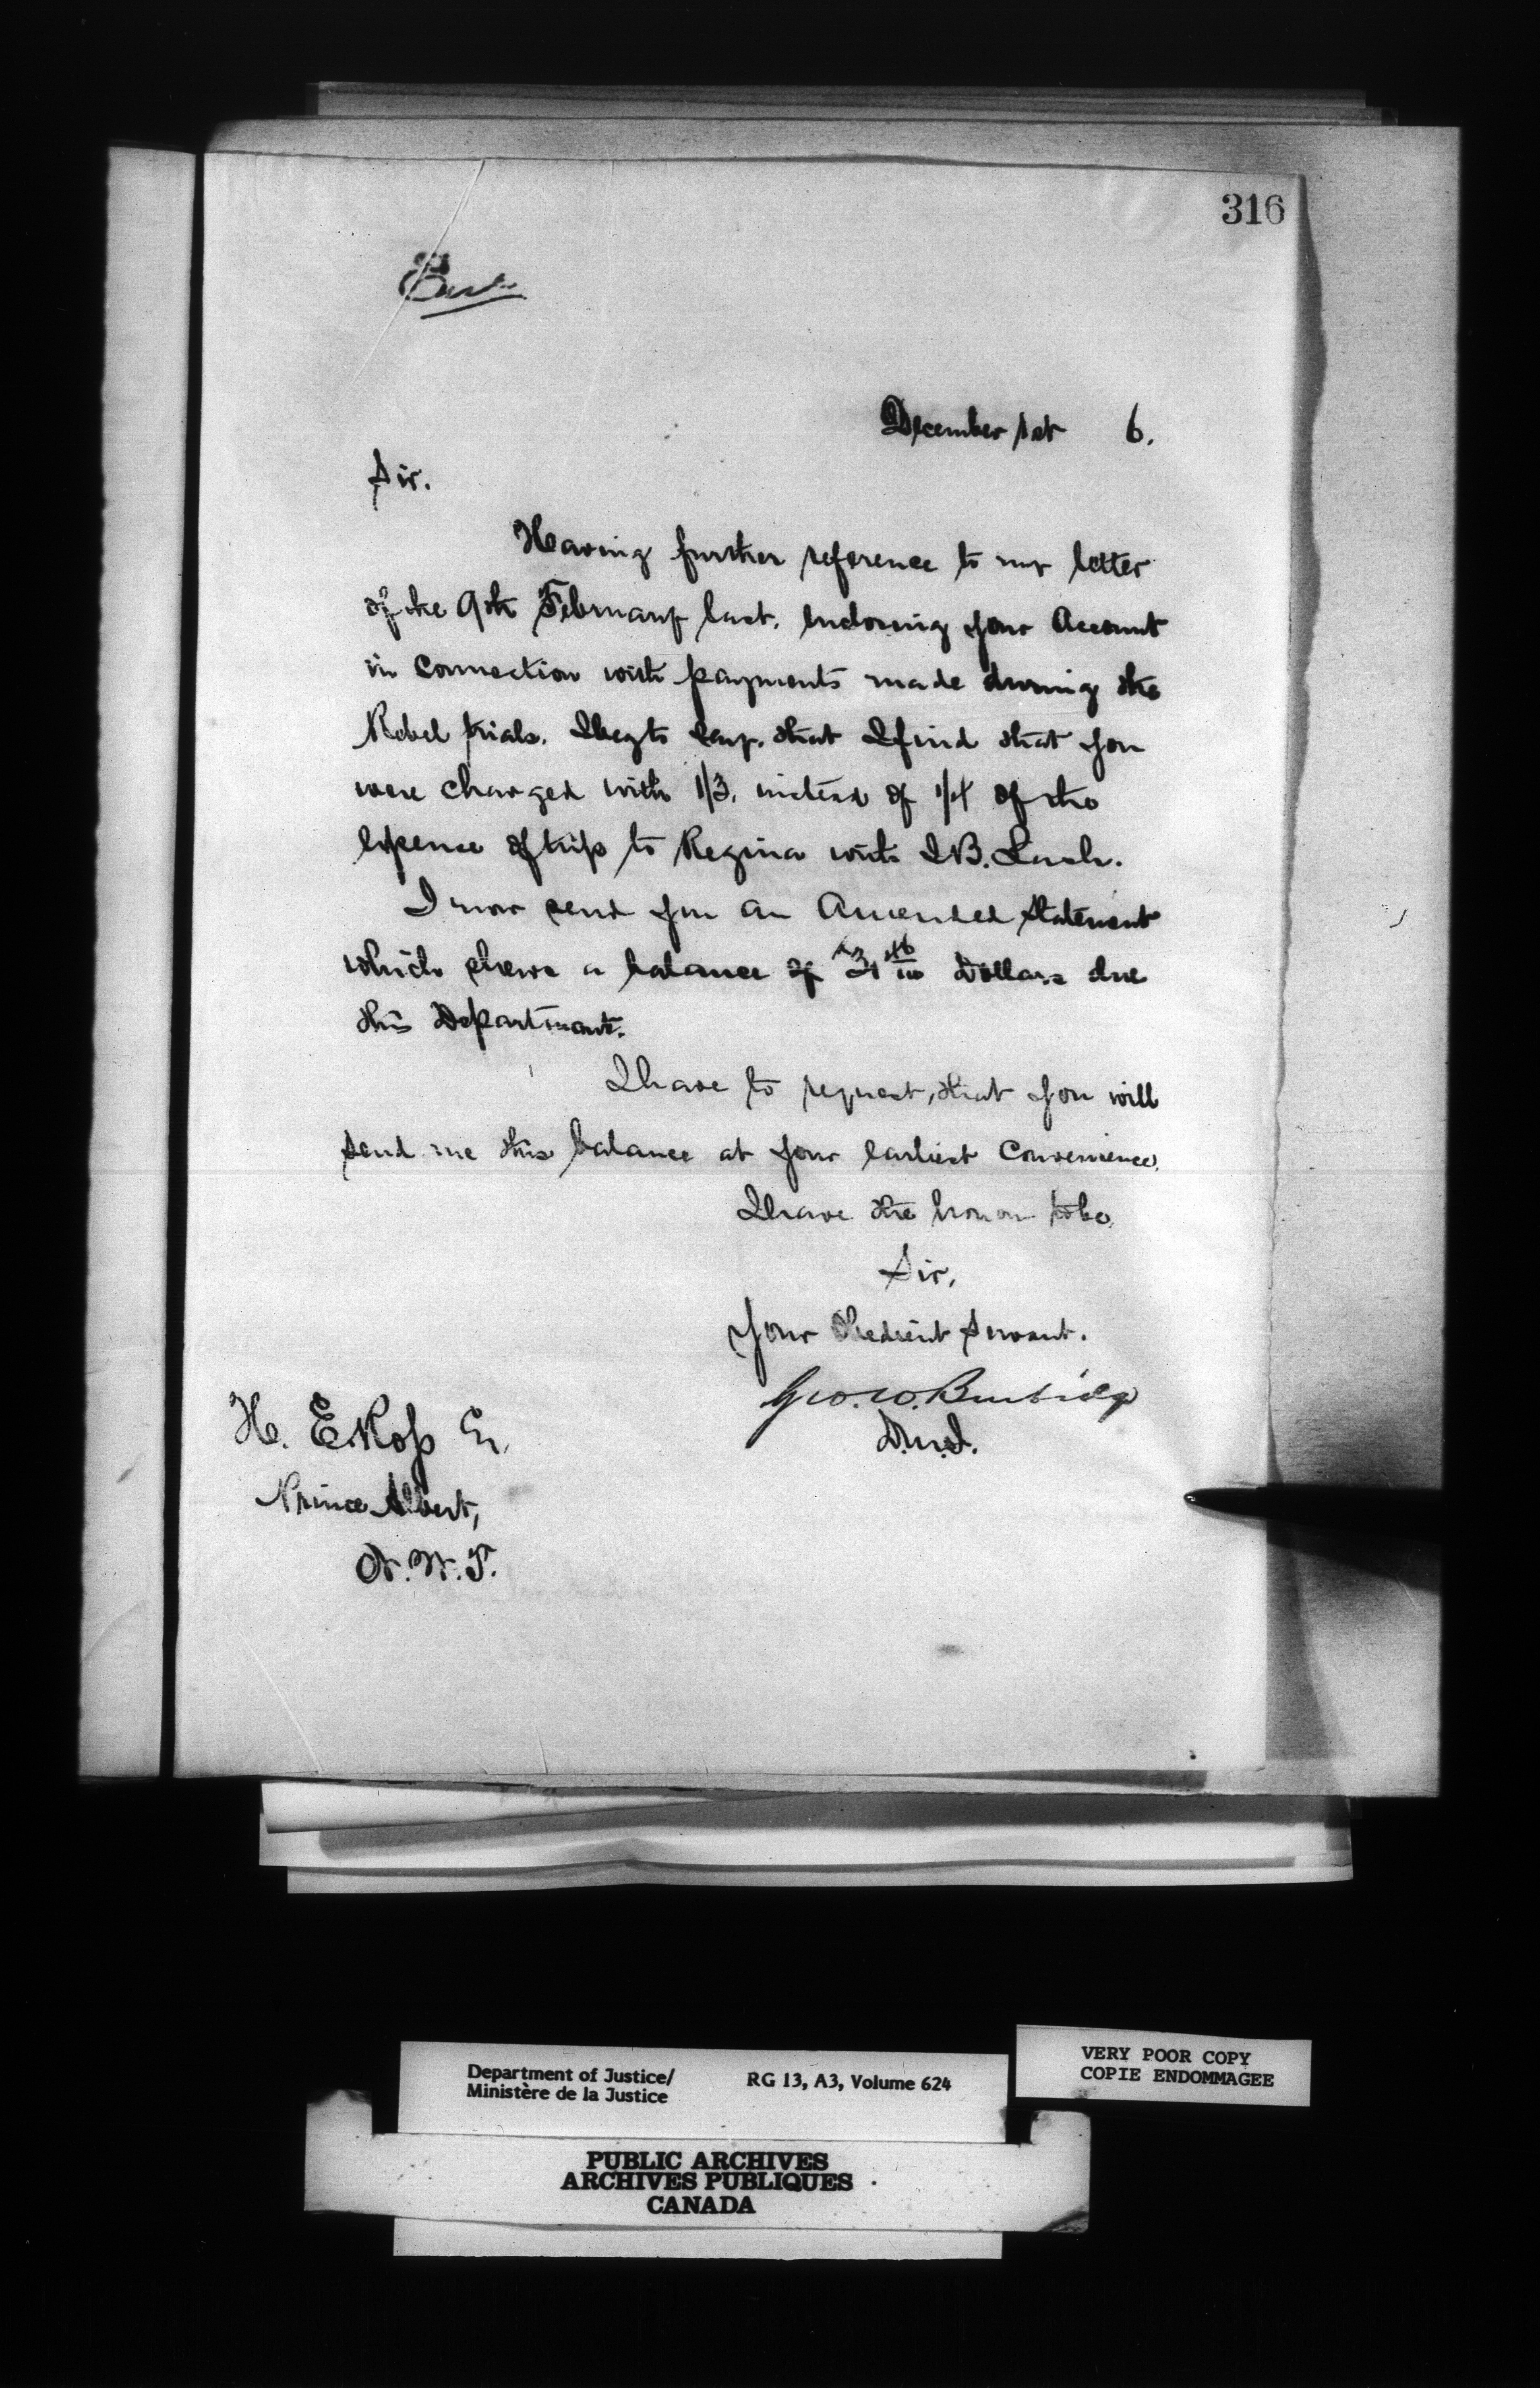 316
December 1st 6.
Sir.
Having further reference to my letter
of the 9th February last, enclosing your Account
in Connection with payments made during the
Rebel trials. I beg to say, that I find that you
were charged with 1/3, instead of 1/4 of the
expence of trip to Regina with I.B. Lash.
I now send you an Amended Statement
which shews a balance of Dollars due
this Department.
I have to request, that you will
send me this balance at your earliest Convenience.
I have the honor to be
Sir,
Your Obedient Servant.
Geo. W. Burbidge
D.M.J.
H. E Ross Esq.
Prince Albert,
N.W.T.
Department of Justice/ RG 13, A3, Volume 624
Ministère de la Justice
VERY POOR COPY
COPIE ENDOMMAGEE
PUBLIC ARCHIVES
ARCHIVES PUBLIQUES
CANADA